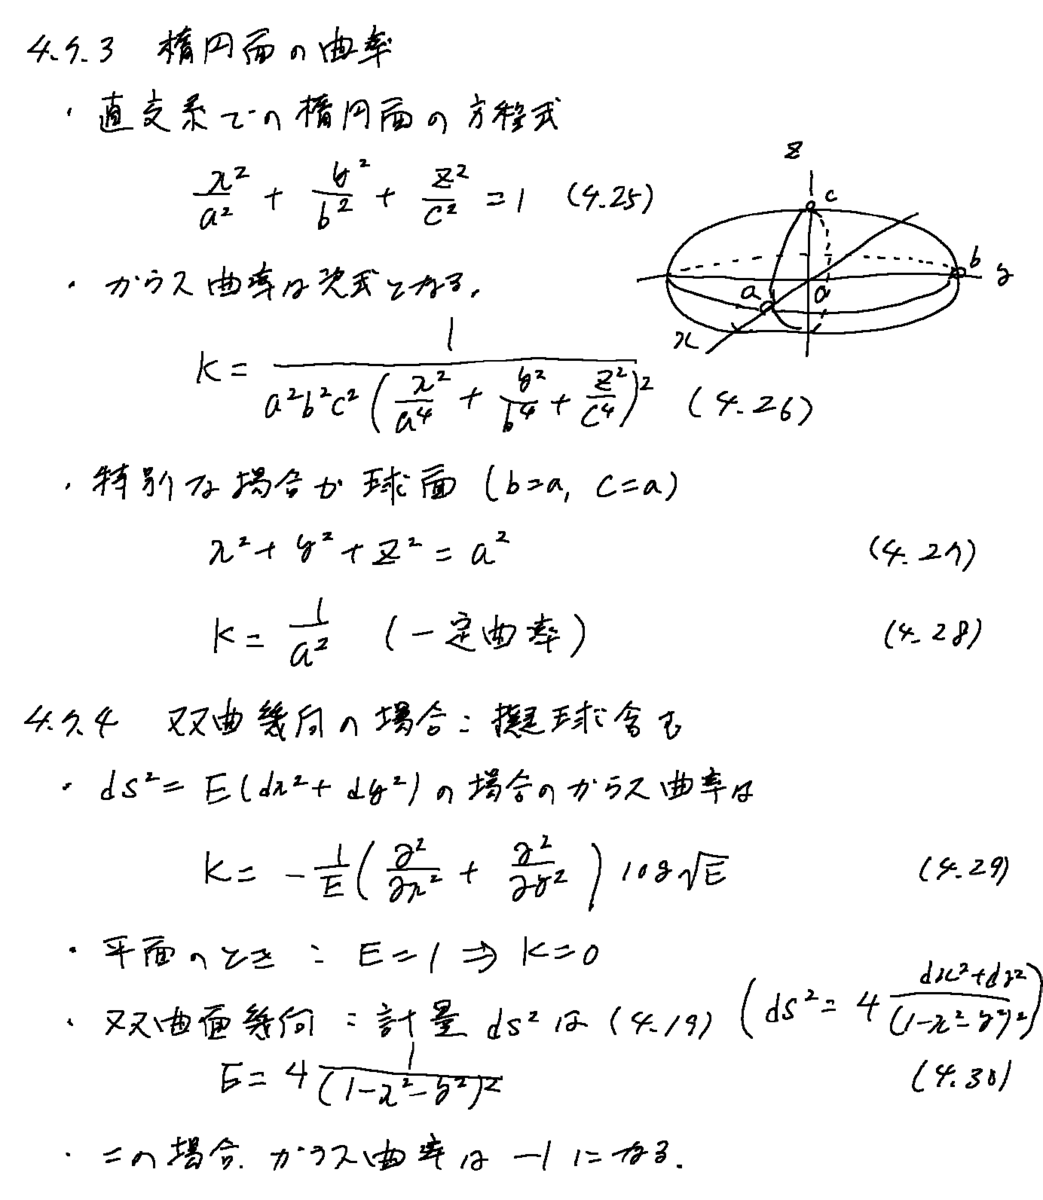 4.5.3 楕円面の曲率
・直交系での楕円面の方程式
x²/a² + y²/b² + z²/c² = 1 (4.25)
z
c
b
y
a
0
x
・ガウス曲率は次式となる.
K = 1/(a²b²c²(x²/a⁴ + y²/b⁴ + z²/c⁴)²) (4.26)
・特別な場合が球面 (b=a, c=a)
x² + y² + z² = a² (4.27)
K = 1/a² (一定曲率) (4.28)
4.5.4 双曲幾何の場合：擬球含む
・ds² = E(dx² + dy²) の場合のガウス曲率は
K = -1/E (∂²/∂x² + ∂²/∂y²) log√E (4.29)
・平面のとき : E=1 ⇒ K=0
・双曲面幾何 : 計量 ds² は (4.19) (ds² = 4 (dx²+dy²)/(1-x²-y²)²)
E = 4 1/(1-x²-y²)² (4.30)
・この場合. ガウス曲率は -1 になる.